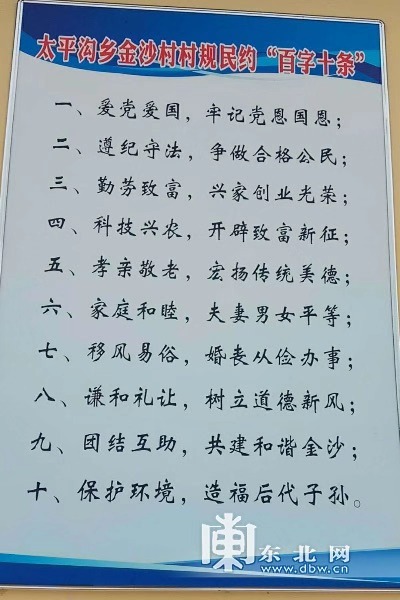 太平沟乡金沙村村规民约“百字十条”
一、爱党爱国，牢记党恩国恩；
二、遵纪守法，争做合格公民；
三、勤劳致富，兴家创业光荣；
四、科技兴农，开辟致富新征；
五、孝亲敬老，宏扬传统美德；
六、家庭和睦，夫妻男女平等；
七、移风易俗，婚丧从俭办事；
八、谦和礼让，树立道德新风；
九、团结互助，共建和谐金沙；
十、保护环境，造福后代子孙。
东北网
www.dbw.cn